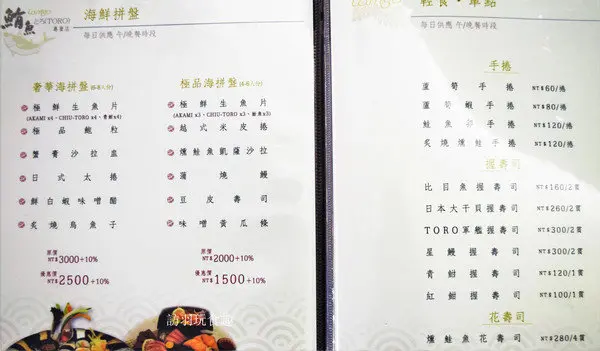 鮪魚
とろ(TORO)
專賣店
海鮮拼盤
每日供應 午/晚餐時段
奢華海拼盤
極鮮生魚片
(AKAMI x4、CHIU-TORO x4、青魽x4)
極品鮑粒
蟹膏沙拉盅
日式太捲
鮮白蝦味噌醋
炙燒烏魚子
原價
NT$3000+10%
優惠價
NT$2500+10%
極品海拼盤
極鮮生魚片
(AKAMI x3、CHIU-TORO x3、鮭魚x3)
越式米皮捲
燻鮭魚凱薩沙拉
蒲燒鰻
豆皮壽司
味噌黃瓜條
原價
NT$2000+10%
優惠價
NT$1500+10%
輕食·單點
每日供應 午/晚餐時段
手捲
蘆筍手捲 NT$60/捲
蘆筍蝦手捲 NT$80/捲
鮭魚卵手捲 NT$120/捲
炙燒燻鮭手捲 NT$120/捲
握壽司
比目魚握壽司 NT$160/2貫
日本大干貝握壽司 NT$260/2貫
TORO軍艦握壽司 NT$300/2貫
星鰻握壽司 NT$300/2貫
青魽握壽司 NT$120/1貫
紅魽握壽司 NT$100/1貫
花壽司
燻鮭魚花壽司 NT$280/4貫